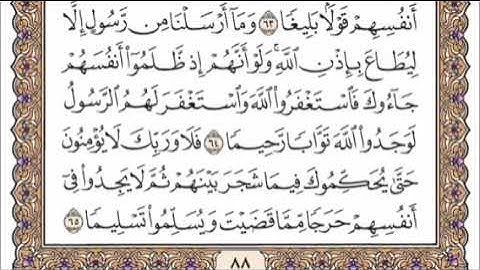 أَنفُسِهِمْ قَوْلًۢا بَلِيغًا ٦٣ وَمَآ أَرْسَلْنَا مِن رَّسُولٍ إِلَّا
لِيُطَاعَ بِإِذْنِ ٱللَّهِ ۚ وَلَوْ أَنَّهُمْ إِذ ظَّلَمُوٓا۟ أَنفُسَهُمْ
جَآءُوكَ فَٱسْتَغْفَرُوا۟ ٱللَّهَ وَٱسْتَغْفَرَ لَهُمُ ٱلرَّسُولُ
لَوَجَدُوا۟ ٱللَّهَ تَوَّابًا رَّحِيمًا ٦٤ فَلَا وَرَبِّكَ لَا يُؤْمِنُونَ
حَتَّىٰ يُحَكِّمُوكَ فِيمَا شَجَرَ بَيْنَهُمْ ثُمَّ لَا يَجِدُوا۟ فِىٓ
أَنفُسِهِمْ حَرَجًا مِّمَّا قَضَيْتَ وَيُسَلِّمُوا۟ تَسْلِيمًا ٦٥
٨٨